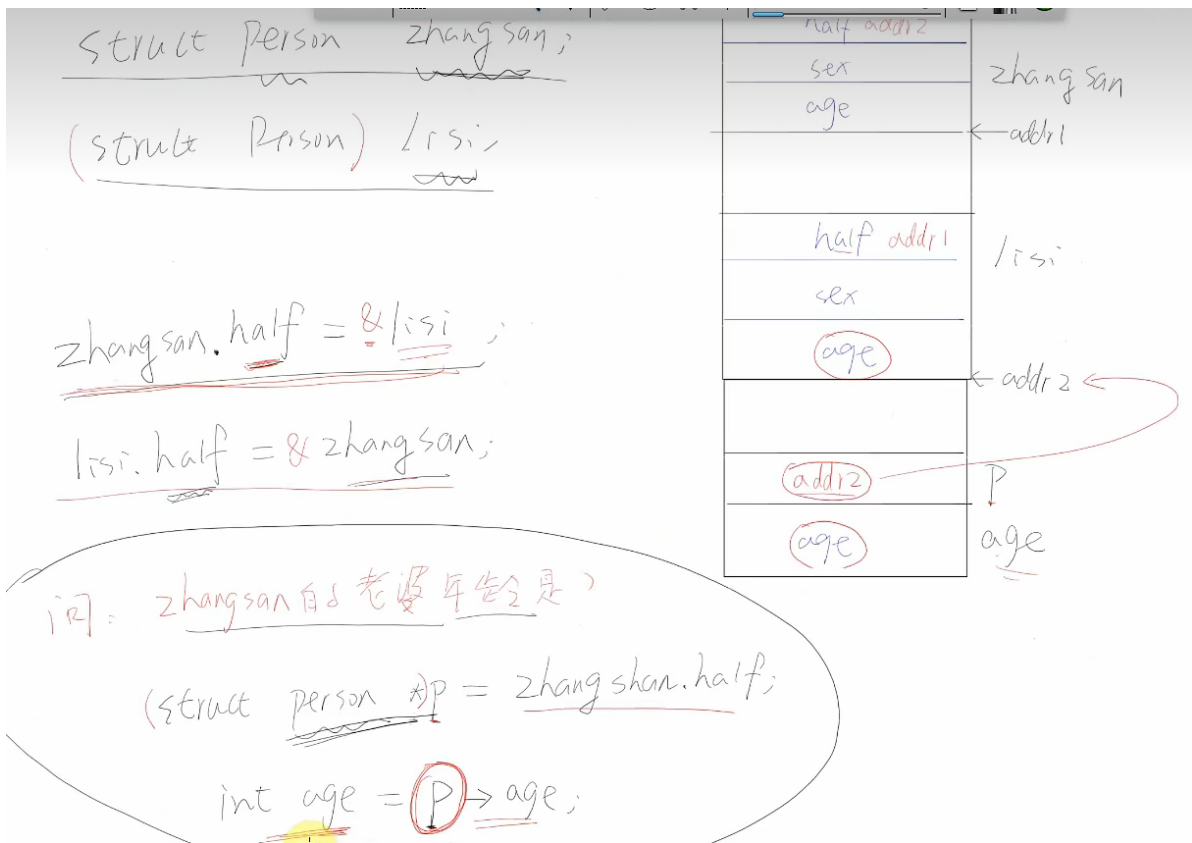 struct person zhangsan;
(struct Person) lisi;
zhangsan.half = &lisi;
lisi.half = &zhangsan;
问: zhangsan的老婆年龄是?
(struct person *)p = zhangshan.half;
int age = P→age;
half addr2
sex
age
zhangsan
←addr1
half addr1
sex
age
lisi
←addr2
addr2
P
age
age